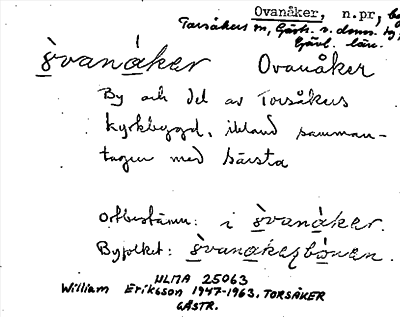 Ovanåker, n.pr,
Torsåkers sn, Gästr. s. doms.
Gävl. län.
òvanåker Ovanåker
By och del av Torsåkers
kyrkbygd, ibland samman-
tagen med Bärsta
Ortbestämn: i òvanåker.
Byfolket:
ULMA 25063
William Eriksson 1947-1963. TORSÅKER
GÄSTR.